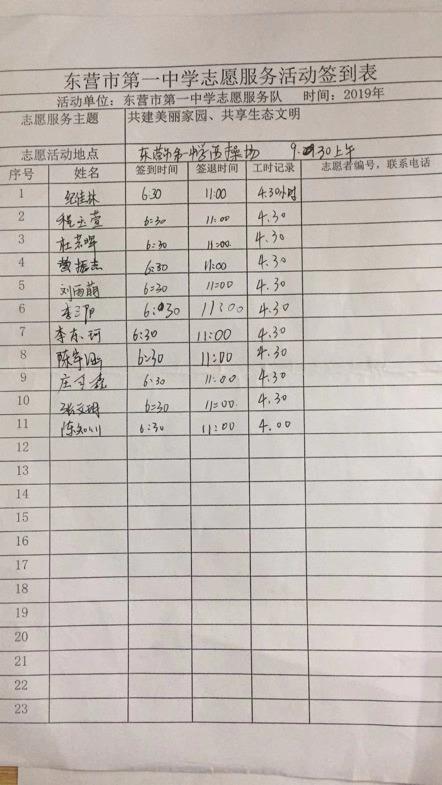 东营市第一中学志愿服务活动签到表
活动单位：东营市第一中学志愿服务队 时间：2019年
志愿服务主题 共建美丽家园、共享生态文明
志愿活动地点 东营市第一中学西操场 9. 30上午
序号 姓名 签到时间 签退时间 工时记录 志愿者编号，联系电话
1 纪佳林 6:30 11:00 4.30小时
2 程玉萱 6:30 11:00 4.30
3 杜若晖 6:30 11:00 4.30
4 振志 6:30 11:00 4.30
5 刘雨萌 6:30 11:00 4.30
6 李 6:30 11:00 4.30
7 李东珂 6:30 11:00 4.30
8 陈宇涵 6:30 11:00 4.30
9 庄 6:30 11:00 4.30
10 张文珺 6:30 11:00 4.30
11 陈知川 6:30 11:00 4.00
12
13
14
15
16
17
18
19
20
21
22
23